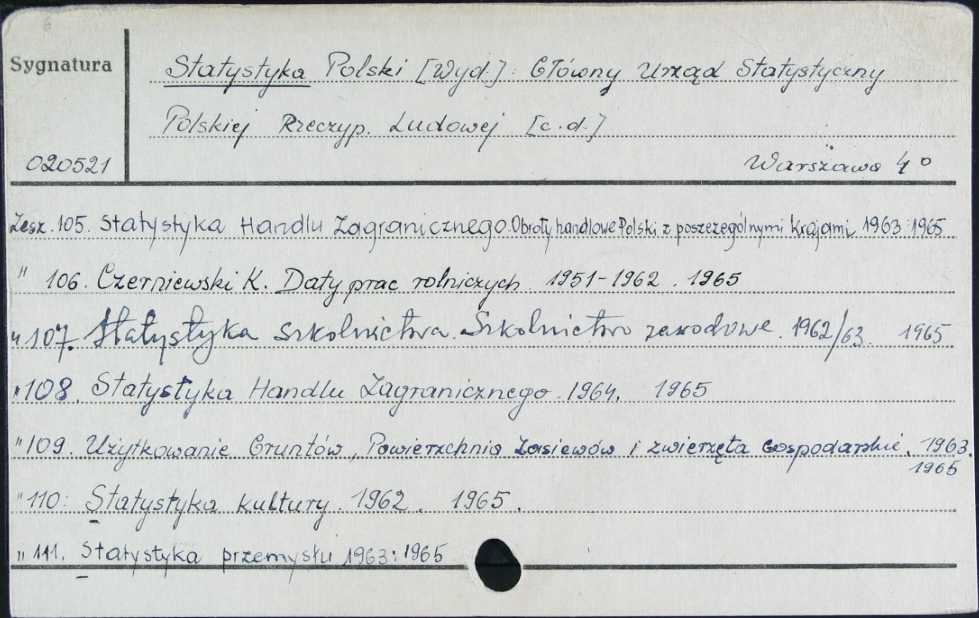 6
Sygnatura
Statystyka Polski [Wyd.]: Główny Urząd Statystyczny
Polskiej Rzeczyp. Ludowej [c.d.]
020521
Warszawa 4°
Zesz. 105. Statystyka Handlu Zagranicznego. Obroty handlowe Polski z poszczególnymi Krajami 1963 1965
" 106. Czerniewski K. Daty prac rolniczych 1951-1962. 1965
" 107. Statystyka szkolnictwa. Szkolnictwo zawodowe. 1962/63. 1965.
" 108. Statystyka Handlu Zagranicznego. 1964. 1965
" 109. Użytkowanie Gruntów, Powierzchnia Zasiewów i zwierzęta Gospodarskie. 1963.
1965
" 110: Statystyka kultury. 1962. 1965.
" 111. Statystyka przemysłu 1963. 1965